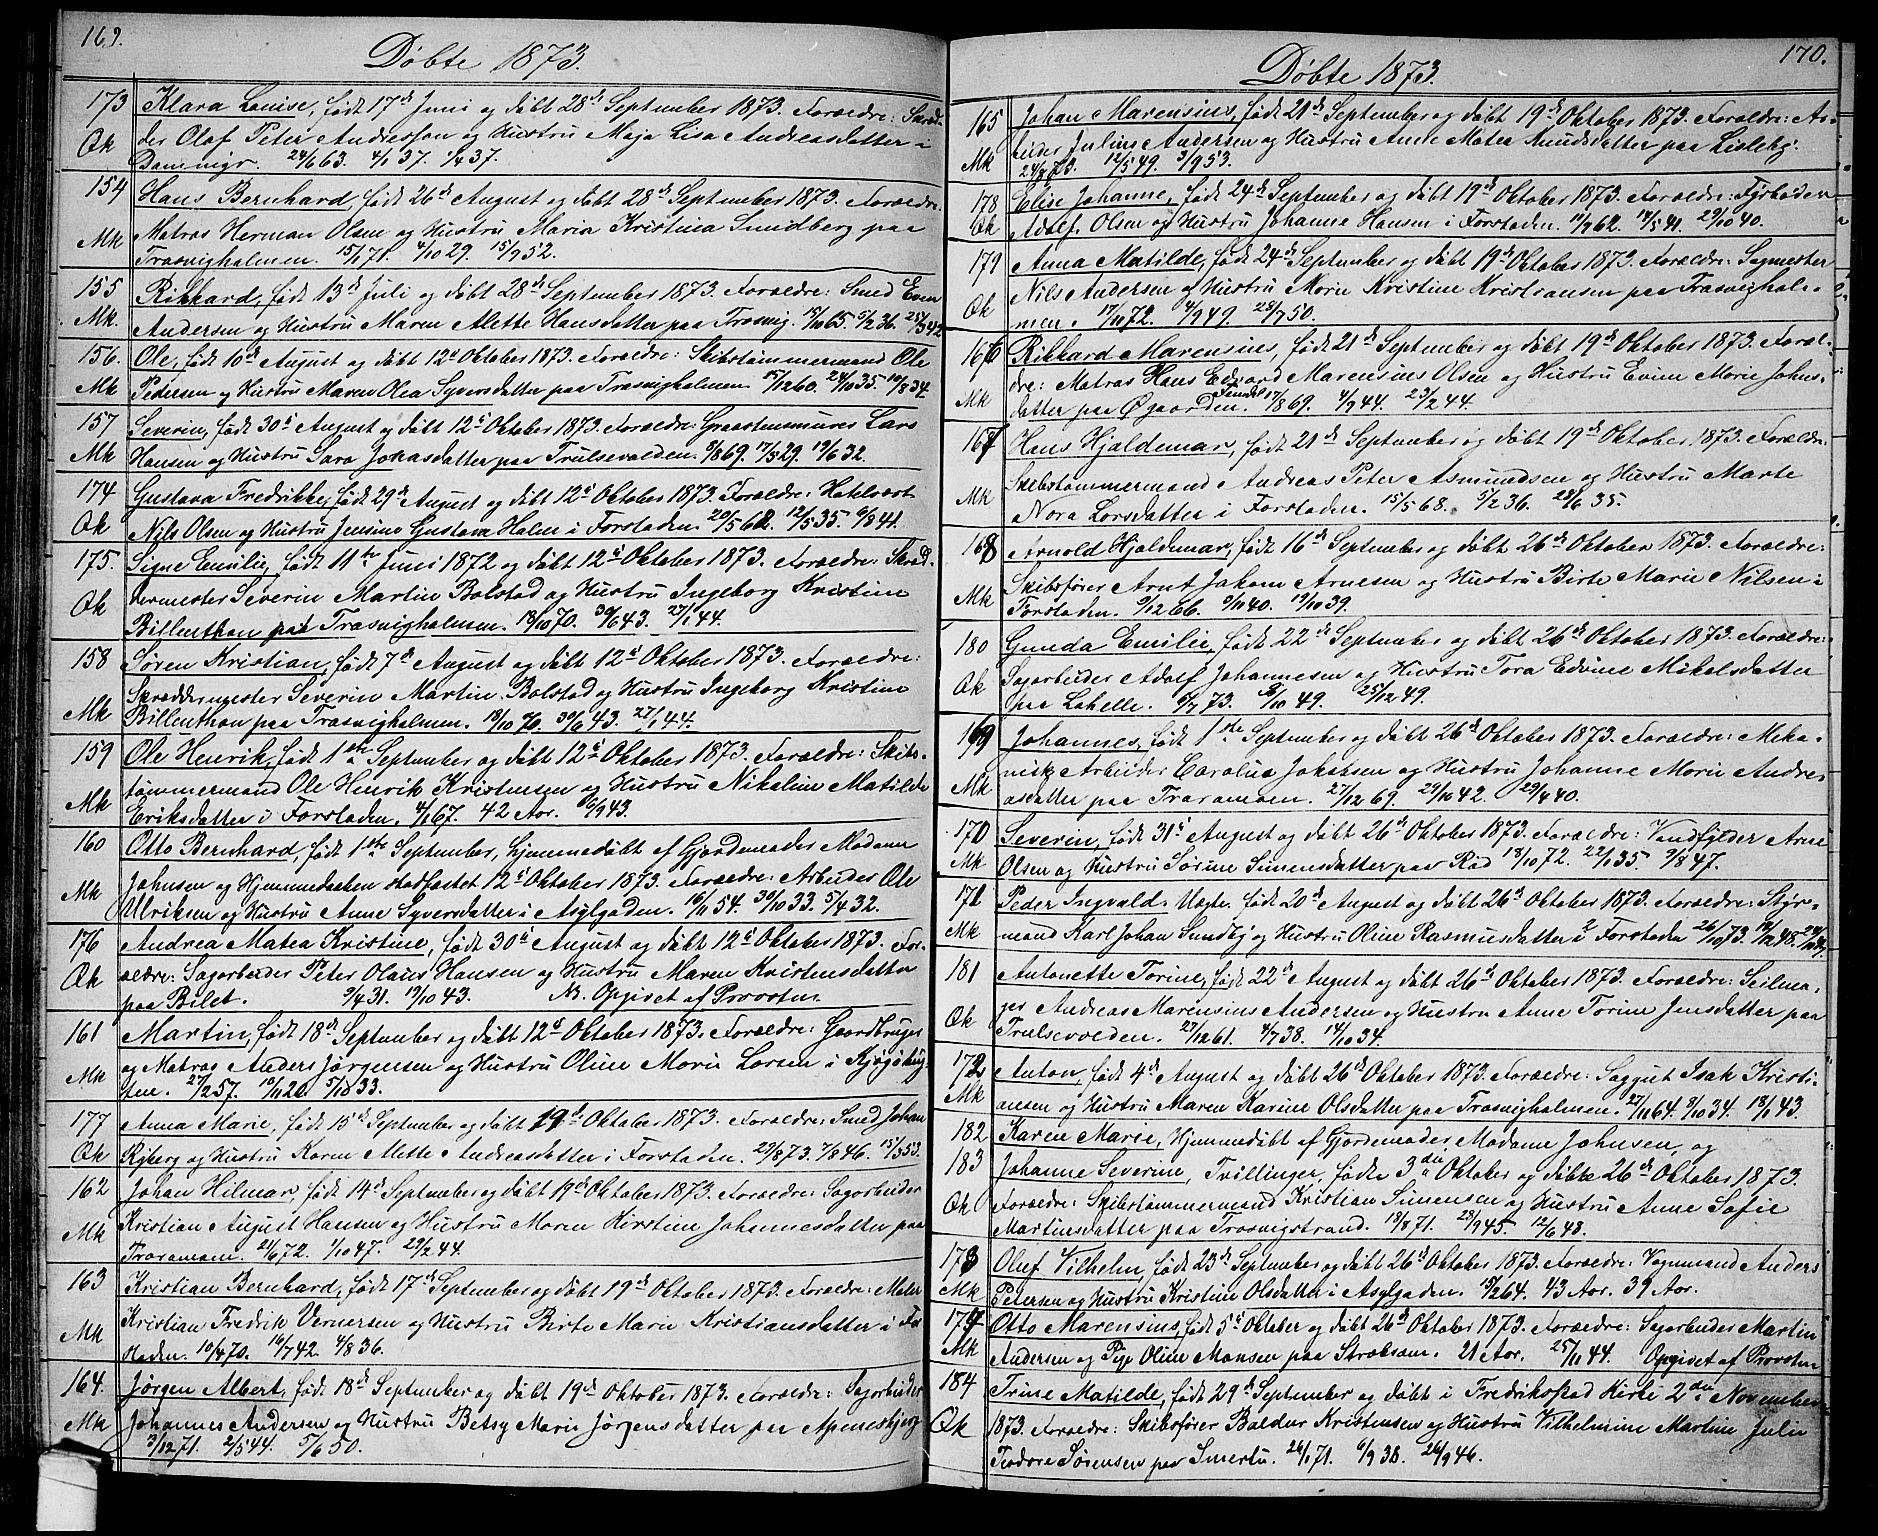 169.
Døbte 1873.
173 Klara Louise, født 17de Juni og døbt 28de September 1873. Forældre: Skræd-
Qk der Olaf Peter Andersson og Hustru Maja Lisa Andreasdatter i
Dammigr. 24/6 63. 4/1 37. 1/4 37.
154 Hans Bernhard, født 26de August og døbt 28de September 1873. Forældre:
Mk Matros Herman Olsen og Hustru Maria Kristina Smidberg paa
Trosvighalmen. 15/1 71. 4/10 29. 15/9 52.
155 Rikhard, født 13de Juli og døbt 28de September 1873. Forældre: Smed Even
Mk. Andersen og Hustru Maren Alette Hansdatter paa Trosvig. 15/10 65. 5/2 36. 25/3 42.
156. Ole, født 10de August og døbt 12te Oktober 1873. Forældre: Skibstømmermand Ole
Mk Pedersen og Hustru Maren Olea Syversdatter paa Trosvighalmen. 15/12 60. 24/10 35. 10/8 34.
157 Severin, født 30te August og døbt 12te Oktober 1873. Forældre: Graastensmurer Lars
Mk Hansen og Hustru Sara Jonasdatter paa Trulsevolden. 8/8 69. 17/5 29. 19/6 32.
174 Gustava Fredrikke, født 29de August og døbt 12te Oktober 1873. Forældre: Hotelvært
Qk Nils Olsen og Hustru Jensine Gustava Holm i Forstaden. 20/5 62. 12/5 35. 6/8 41.
175. Signe Emilie, født 11te Juni 1872 og døbt 12te Oktober 1873. Forældre: Skræd-
Qk dermester Severin Martin Bolstad og Hustru Ingeborg Kristine
Billenthon paa Trosvighalmen. 18/10 70. 30/6 43. 27/1 44.
158 Søren Kristian, født 7de August og døbt 12te Oktober 1873. Forældre:
Skræddermester Severin Martin Bolstad og Hustru Ingeborg Kristine
Mk Billenthon paa Trosvighalmen. 18/10 70. 30/6 43. 27/1 44.
159 Ole Henrik, født 1ste September og døbt 12te Oktober 1873. Forældre: Skibs-
Mk tømmermand Ole Henrik Kristensen og Hustru Nikoline Matilde
Eriksdatter i Forstaden. 4/1 67. 42 Aar. 6/9 43.
160 Otto Bernhard, født 1ste September, hjemmedøbt af Gjordemoder Madame
Mk Johnsen og Hjemmedaaben stadfæstet 12te Oktober 1873. Forældre: Arbeider Ole
Ulriksen og Hustru Anne Syversdatter i Asylgaden. 16/11 54. 30/10 33. 5/4 32.
176 Andrea Matea Kristine, født 30te August og døbt 12te Oktober 1873. For-
Qk ældre: Sagarbeider Peter Olaus Hansen og Hustru Maren Kristensdatter
paa Bilet. 9/4 31. 19/10 43. NB. Opgivet af Provsten
161 Martin, født 18de September og døbt 12te Oktober 1873. Forældre: Gaardbruger
Mk og Matros Anders Jørgensen og Hustru Oline Marie Larsen i Kjøgebug-
ten. 27/2 57. 10/11 20. 5/10 33.
177 Anna Marie, født 15de September og døbt 19de Oktober 1873. Forældre: Smed Johan
Qk Ryberg og Hustru Karen Mette Andreasdatter i Forstaden. 23/8 73. 7/8 46. 15/3 53.
162 Johan Hilmar, født 14de September og døbt 19de Oktober 1873. Forældre: Sagarbeider
Mk Kristian August Hansen og Hustru Maren Kirstine Johannesdatter paa
Traramoen. 21/6 72. 1/10 47. 23/2 44.
163 Kristian Bernhard, født 17de September og døbt 19de Oktober 1873. Forældre: Maler
Mk Kristian Fredrik Vernersen og Hustru Birte Marie Kristiansdatter i For
staden. 10/4 70. 10/7 42. 4/8 36.
164. Jørgen Albert, født 18de September og døbt 19de Oktober 1873. Forældre: Sagarbeider
Mk Johannes Andersen og Hustru Betsy Marie Jørgensdatter paa Apenesbjerg
3/12 71. 2/5 44. 5/6 50.
170.
Døbte 1873.
165 Johan Marensius, født 21de September og døbt 19de Oktober 1873. Forældre: Ar-
Mk beider Julius Andersen og Hustru Anne Matea Knudsdatter paa Lisleby.
24/8 73. 12/5 49. 3/9 53.
178 Elise Johanne, født 24de September og døbt 19de Oktober 1873. Forældre: Fyrbøder
Qk Adolf Olsen og Hustru Johanne Hansen i Forstaden. 11/9 62. 14/5 41. 29/10 40.
179 Anna Matilde, født 24de September og døbt 19de Oktober 1873. Forældre: Sagmester
Qk Nils Andersen og Hustru Marie Kristine Kristiansen paa Trosvighal-
men. 17/11 72. 4/9 49. 28/7 50.
166 Rikkard Marensius, født 21de September og døbt 19de Oktober 1873. Foræl-
dre: Matros Hans Edvard Marensius Olsen og Hustru Evine Marie Johns-
Mk datter paa Øgaarden. 17/8 69. 4/9 44. 23/2 44.
167 Hans Hjaldemar, født 21de September og døbt 19de Oktober 1873. Forældre:
Mk Skibstømmermand Andreas Peter Asmundsen og Hustru Marte
Nora Larsdatter i Forstaden. 15/5 68. 5/2 36. 28/6 35.
168 Arnold Hjaldemar, født 16de September og døbt 26de Oktober 1873. Forældre:
Mk Skibsfører Arnt Johan Arnesen og Hustru Birte Marie Nilsen i
Forstaden. 9/12 66. 9/10 40. 19/10 39.
180 Gunda Emilie, født 22de September og døbt 26de Oktober 1873. Forældre:
Qk Sagarbeider Adolf Johannesen og Hustru Tora Edvine Mikelsdatter
paa Lahelle. 6/7 73. 8/10 49. 25/12 49.
169 Johannes, født 1ste September og døbt 26de Oktober 1873. Forældre: Meka-
Mk nisk Arbeider Carolus Jakobsen og Hustru Johanne Marie Andre-
asdatter paa Traramoen. 27/12 69. 29/10 42. 29/4 40.
170 Severin, født 31te August og døbt 26de Oktober 1873. Forældre: Vandfylder Arne
Mk Olsen og Hustru Sørine Simensdatter paa Rød 18/10 72. 22/1 35. 9/8 47.
171 Peder Ingvald. Uægte. født 20de August og døbt 26de Oktober 1873. Forældre: Styr-
Mk mand Karl Johan Sundby og Hustru Oline Rasmusdatter i Forstaden 26/10 73. 19/12 48.
181 Antonette Torine, født 22de August og døbt 26de Oktober 1873. Forældre: Seilma-
Qk ger Andreas Marensius Andersen og Hustru Anne Torine Jensdatter paa
Trulsevolden. 27/12 61. 4/7 38. 14/10 34.
172 Anton, født 4de August og døbt 26de Oktober 1873. Forældre: Saggut Isak Kristi-
Mk ansen og Hustru Maren Karine Olsdatter paa Trosvighalmen. 27/11 64. 8/10 34. 18/1 43.
182 Karen Marie, Hjemmedøbt af Gjordemoder Madame Johnsen, og
183 Johanne Severine, Tvillinger, fødte 3die Oktober og døbte 26de Oktober 1873.
Qk Forældre: Skibstømmermand Kristian Simensen og Hustru Anne Sofie
Martinsdatter paa Trosvigstrand. 18/8 71. 28/9 45. 12/6 48.
173 Oluf Vilhelm, født 23de September og døbt 26de Oktober 1873. Forældre: Vognmand Anders
Mk Petersen og Hustru Kristine Olsdatter i Asylgaden. 15/2 64. 43 Aar. 39 Aar.
174 Otto Marensius, født 5te Oktober og døbt 26de Oktober 1873. Forældre: Sagarbeider Martin
Mk Andersen og Pige Oline Monsen paa Stråbsom. 21 Aar. 25/11 44. Opgivet af Provsten
184 Trine Matilde, født 29de September og døbt i Fredriksstad Kirke 2den November
Qk 1873. Forældre: Skibsfører Baldur Kristensen og Hustru Vilhelmine Martine Julie
Teodora Sørensen paa Smertu. 26/1 71. 6/9 38. 26/9 46.